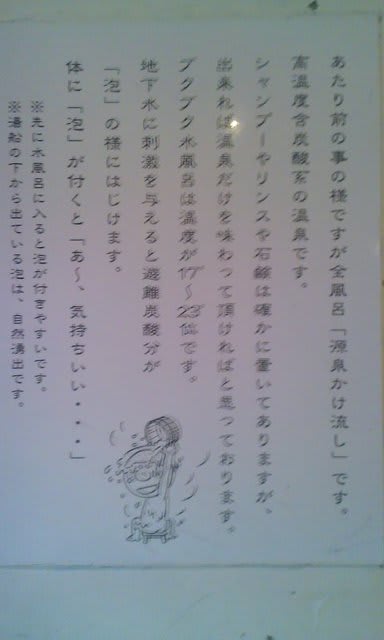 あたり前の事の様ですが全風呂「源泉かけ流し」です。
高温度含炭酸系の温泉です。
シャンプーやリンスや石鹸は確かに置いてありますが、
出来れば温泉だけを味わって頂ければと思っております。
ブクブク水風呂は温度が17~23位です。
地下水に刺激を与えると遊離炭酸分が
「泡」の様にはじけます。
体に「泡」が付くと「あ~、気持ちいい・・・」
※先に水風呂に入ると泡が付きやすいです。
※湯船の下から出ている泡は、自然湧出です。